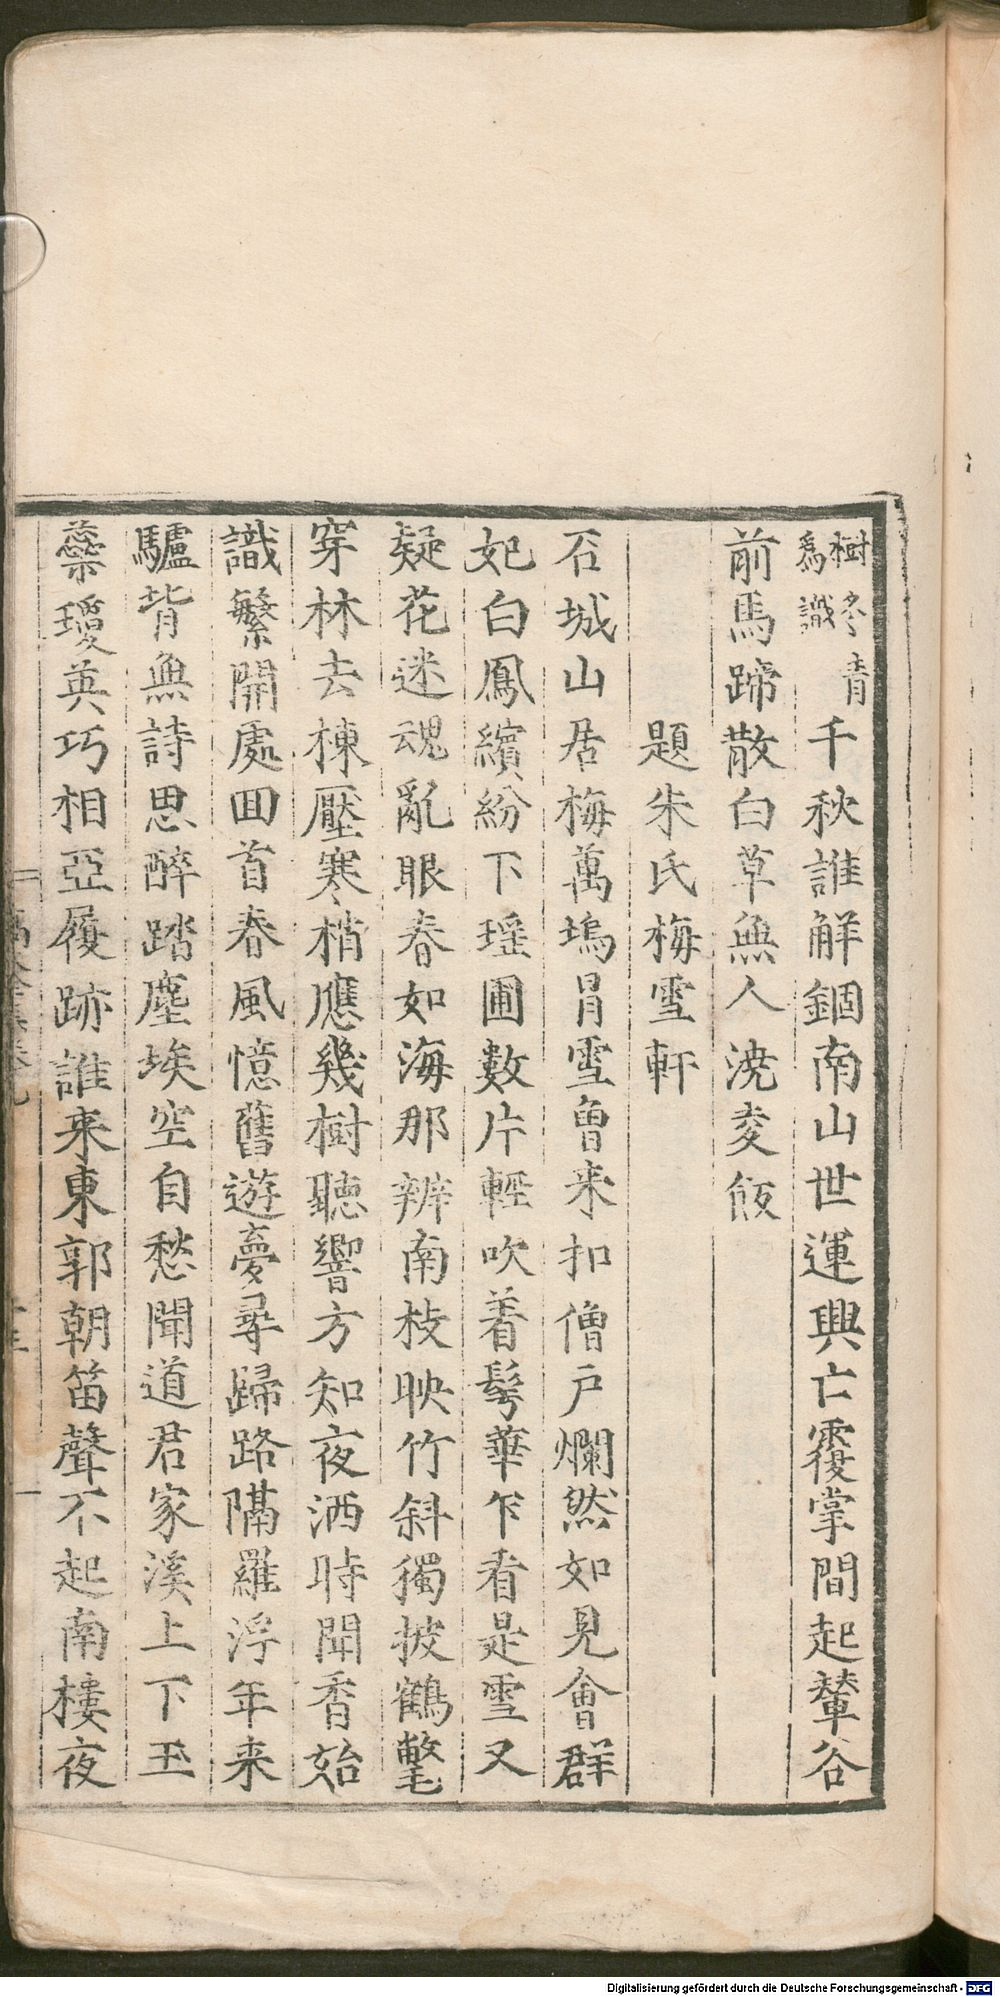 樹冬青
爲識
千秋誰解錮南山世運興亡覆掌間起輦谷
前馬蹄散白草無人澆麦飯
題朱氏梅雪軒
石城山居梅萬塢冐雪曽来扣僧戸爛然如見會群
妃白鳳繽紛下瑶圃數片輕吹着髩華乍看是雪又
疑花迷魂亂眼春如海那辨南枝映竹斜獨披鶴氅
穿林去棟壓寒梢應幾樹聽響方知夜洒時聞香始
識繁開處回首春風憶舊遊夢尋歸路隔羅浮年来
驢背無詩思醉踏塵埃空自愁聞道君家溪上下玉
蘂瓊英巧相亞履跡誰来東郭朝笛聲不起南樓夜